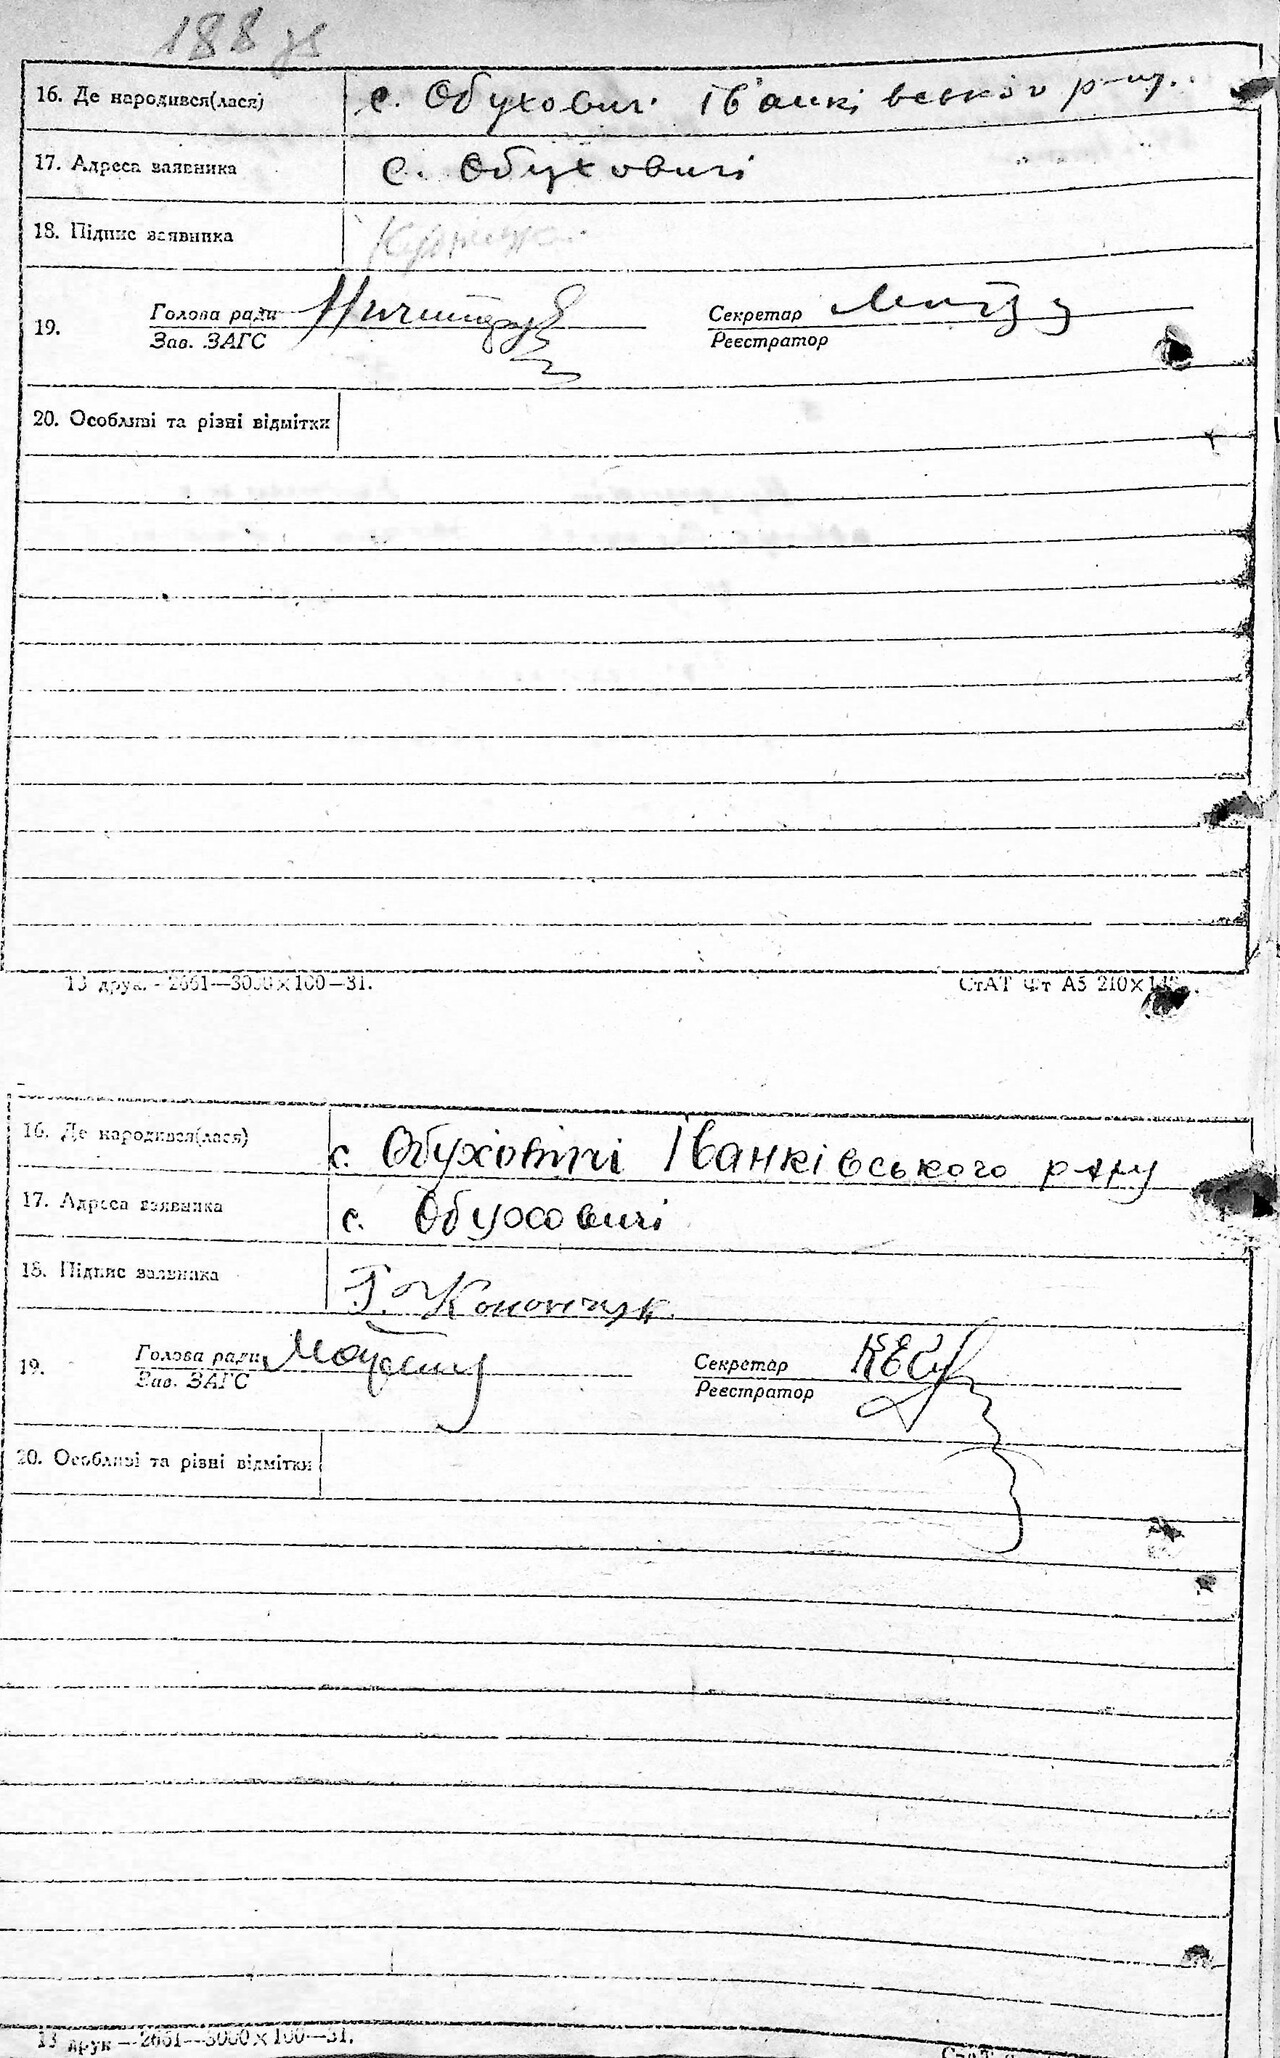 188 зв
16. Де народився(лася) с. Обуховичі Іванківського р-ну.
17. Адреса заявника с. Обуховичі
18. Підпис заявника
Голова ради Секретар
19.
Зав. ЗАГС Реєстратор
20. Особливі та різні відмітки
13 друк. - 2661—3000×100—31. СтАТ Фт А5 210×148
16. Де народився(лася) с. Обуховичі Іванківського р-ну
17. Адреса заявника с. Обуховичі
18. Підпис заявника Г. Конончук
Голова ради Секретар
19.
Зав. ЗАГС Реєстратор
20. Особливі та різні відмітки
13 друк — 2661—3000×100—31.